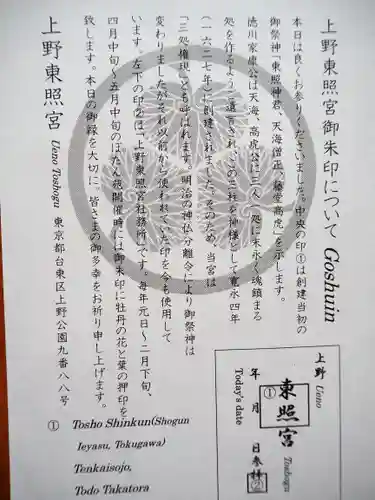 上野東照宮御朱印について Goshuin
本日は良くお参りくださいました。中央の印①は創建当初の
御祭神「東照神君、天海僧正、藤堂高虎」を示します。
徳川家康公は天海、高虎公に「三人一処に末永く魂鎮まる
処を作るよう」遺言され、この三柱を神様として寛永四年
(一六二七年)に創建されました。そのため、当宮は
「三処権現」とも呼ばれます。明治の神仏分離令により御祭神は
変わりましたが、それ以前から使われていた印を今も使用して
います。左下の印②は「上野東照宮社務所」です。毎年元日〜二月下旬、
四月中旬〜五月中旬のぼたん苑開催時には御朱印に牡丹の花と葉の押印を
致します。本日の御縁を大切に、皆さまの御多幸をお祈り申し上げます。
上野東照宮 Ueno Toshogu 東京都台東区上野公園九番八八号
上野 Ueno
東照宮 Toshogu
①
年 月 日参拝
②
Today's date
① Tosho Shinkun(Shogun
Ieyasu, Tokugawa)
Tenkaisojo,
Todo Takatora